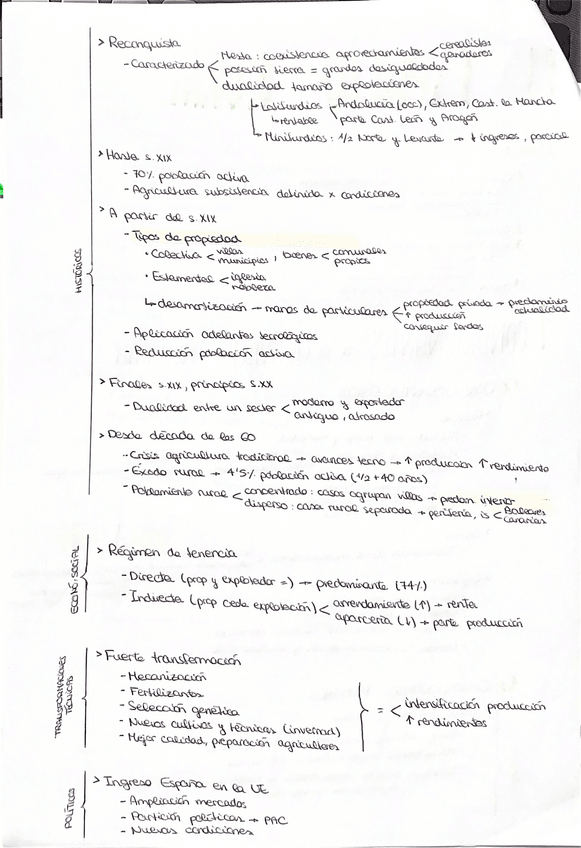 HISTÓRICOS
> Reconquista
- Caracterizado < Mesta: coexistencia aprovechamientos < cerealistas
ganaderos
posesión tierra = grandes desigualdades
dualidad tamaño explotaciones
Latifundios - Andalucía (occ), Extrem, Cast. la Mancha
rentable parte Cast. León y Aragón
Minifundios: 1/2 Norte y Levante → ↓ ingresos, parcial
> Hasta s. XIX
- 70% población activa
- Agricultura subsistencia definida x condiciones
> A partir del s. XIX
- Tipos de propiedad
• Colectiva < villas
municipios, bienes < comunales
propios
• Estamental < iglesia
nobleza
↳ desamortización → manos de particulares < propiedad privada → predominio
actualidad
↑ producción
conseguir fondos
- Aplicación adelantos tecnológicos
- Reducción población activa
> Finales s. XIX, principios s. XX
- Dualidad entre un sector < moderno y exportador
antiguo, atrasado
> Desde década de los 60
- Crisis agricultura tradicional → avances tecno → ↑ produccion ↑ rendimiento
- Éxodo rural → 4'5% población activa (1/2 + 40 años)
- Poblamiento rural < concentrado: casas agrupan villas → predom interior
disperso: casa rural separada → periferia, is < Baleares
Canarias
ECONÓ-SOCIAL
> Régimen de tenencia
- Directa (prop y explotador =) → predominante (74%)
- Indirecta (prop cede explotación) < arrendamiento (↑) → renta
aparcería (↓) → parte producción
TRANSFORMACIONES
TÉCNICAS
> Fuerte transformación
- Mecanización
- Fertilizantes
- Selección genética
- Nuevos cultivos y técnicas (invernad)
- Mejor calidad, preparación agricultores
= < intensificación producción
↑ rendimientos
POLÍTICOS
> Ingreso España en la UE
- Ampliación mercados
- políticas → PAC
- Nuevas condiciones